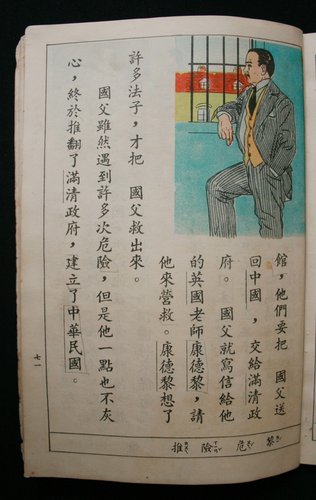 館，他們要把　國父送
回中國，交給滿清政
府。　國父就寫信給他
的英國老師康德黎，請
他來營救。康德黎想了
許多法子，才把　國父救出來。
　國父雖然遇到許多次危險，但是他一點也不灰
心，終於推翻了滿清政府，建立了中華民國。
黎 危 險 推
七一